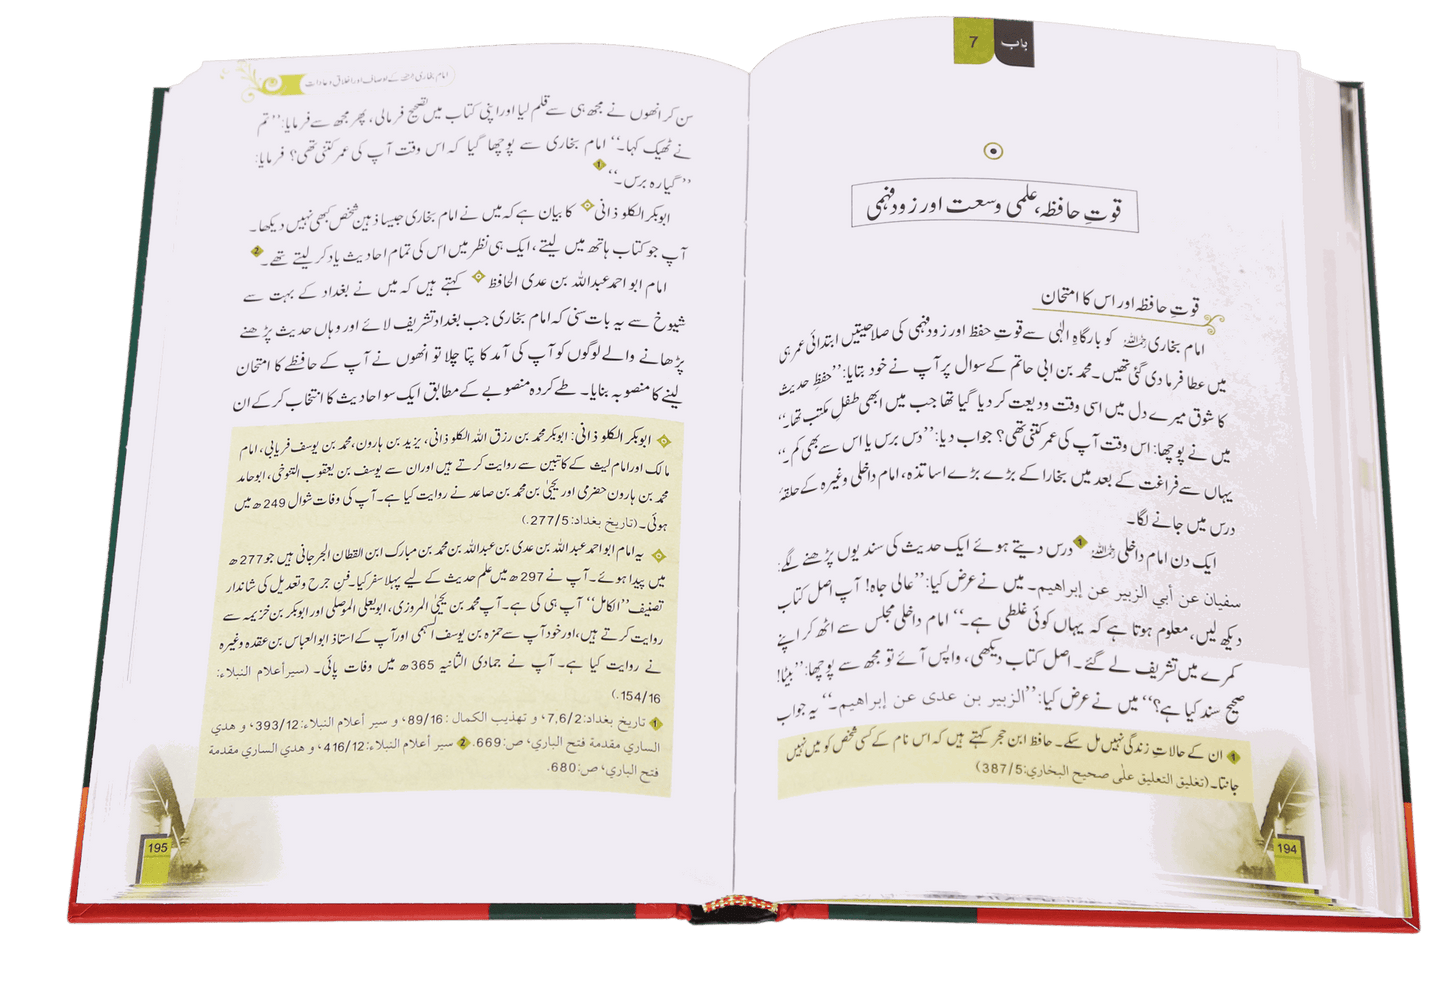 باب 7
قوتِ حافظہ، علمی وسعت اور زود فہمی
قوتِ حافظہ اور اس کا امتحان
امام بخاری رحمہ اللہ کو بارگاہِ الٰہی سے قوتِ حفظ اور زود فہمی کی صلاحیتیں ابتدائی عمر ہی
میں عطا فرما دی گئی تھیں۔ محمد بن ابی حاتم کے سوال پر آپ نے خود بتایا: ’’حفظِ حدیث
کا شوق میرے دل میں اسی وقت ودیعت کر دیا گیا تھا جب میں ابھی طفلِ مکتب تھا۔‘‘
میں نے پوچھا: اس وقت آپ کی عمر کتنی تھی؟ جواب دیا: ’’دس برس یا اس سے بھی کم۔‘‘
یہاں سے فراغت کے بعد میں بخارا کے بڑے بڑے اساتذہ، امام داخلی وغیرہ کے حلقۂ
درس میں جانے لگا۔
ایک دن امام داخلی رحمہ اللہ 1 درس دیتے ہوئے ایک حدیث کی سند یوں پڑھنے لگے:
سفيان عن أبي الزبير عن إبراهيم۔ میں نے عرض کیا: ’’عالی جاہ! آپ اصل کتاب
دیکھ لیں، معلوم ہوتا ہے کہ یہاں کوئی غلطی ہے۔‘‘ امام داخلی مجلس سے اٹھ کر اپنے
کمرے میں تشریف لے گئے۔ اصل کتاب دیکھی، واپس آئے تو مجھ سے پوچھا: ’’بیٹا!
صحیح سند کیا ہے؟‘‘ میں نے عرض کیا: ’’الزبير بن عدى عن إبراهيم۔‘‘ یہ جواب
1 ان کے حالاتِ زندگی نہیں مل سکے۔ حافظ ابن حجر کہتے ہیں کہ اس نام کے کسی شخص کو میں نہیں
جانتا۔ (تغليق التعليق على صحيح البخاري: 387/5)
194
امام بخاری رحمہ اللہ کے اوصاف اور اخلاق و عادات
سن کر انھوں نے مجھ ہی سے قلم لیا اور اپنی کتاب میں تصحیح فرمالی، پھر مجھ سے فرمایا: ’’تم
نے ٹھیک کہا۔‘‘ امام بخاری سے پوچھا گیا کہ اس وقت آپ کی عمر کتنی تھی؟ فرمایا:
’’گیارہ برس۔‘‘ 1
ابوبکر الکلوذانی کا بیان ہے کہ میں نے امام بخاری جیسا ذہین شخص کبھی نہیں دیکھا۔
آپ جو کتاب ہاتھ میں لیتے، ایک ہی نظر میں اس کی تمام احادیث یاد کر لیتے تھے۔ 2
امام ابو احمد عبداللہ بن عدی الحافظ کہتے ہیں کہ میں نے بغداد کے بہت سے
شیوخ سے یہ بات سنی کہ امام بخاری جب بغداد تشریف لائے اور وہاں حدیث پڑھنے
پڑھانے والے لوگوں کو آپ کی آمد کا پتا چلا تو انھوں نے آپ کے حافظے کا امتحان
لینے کا منصوبہ بنایا۔ طے کردہ منصوبے کے مطابق ایک سو احادیث کا انتخاب کر کے ان
ابوبکر الکلوذانی: ابوبکر محمد بن رزق اللہ الکلوذانی، یزید بن ہارون، محمد بن یوسف فریابی، امام
مالک اور امام لیث کے کاتبین سے روایت کرتے ہیں اور ان سے یوسف بن یعقوب التنوخی، ابو حامد
محمد بن ہارون حضرمی اور یحییٰ بن محمد بن صاعد نے روایت کیا ہے۔ آپ کی وفات شوال 249ھ میں
ہوئی۔ (تاریخ بغداد: 277/5.)
یہ امام ابو احمد عبداللہ بن عدی بن عبداللہ بن محمد بن مبارک ابن القطان الجرجانی ہیں جو 277ھ
میں پیدا ہوئے۔ آپ نے 297ھ میں علم حدیث کے لیے پہلا سفر کیا۔ فنِ جرح و تعدیل کی شاندار
تصنیف ’’الکامل‘‘ آپ ہی کی ہے۔ آپ محمد بن یحییٰ المروزی، ابو یعلی الموصلی اور ابوبکر بن خزیمہ سے
روایت کرتے ہیں، اور خود آپ سے حمزہ بن یوسف السہمی اور آپ کے استاذ ابو العباس بن عقدہ وغیرہ
نے روایت کیا ہے۔ آپ نے جمادی الثانیہ 365ھ میں وفات پائی۔ (سير أعلام النبلاء:
154/16.)
1 تاريخ بغداد: 7,6/2، و تهذيب الكمال: 89/16، و سير أعلام النبلاء: 393/12، و هدي
الساري مقدمة فتح الباري، ص: 669. 2 سير أعلام النبلاء: 416/12، و هدي الساري مقدمة
فتح الباري، ص: 680.
195